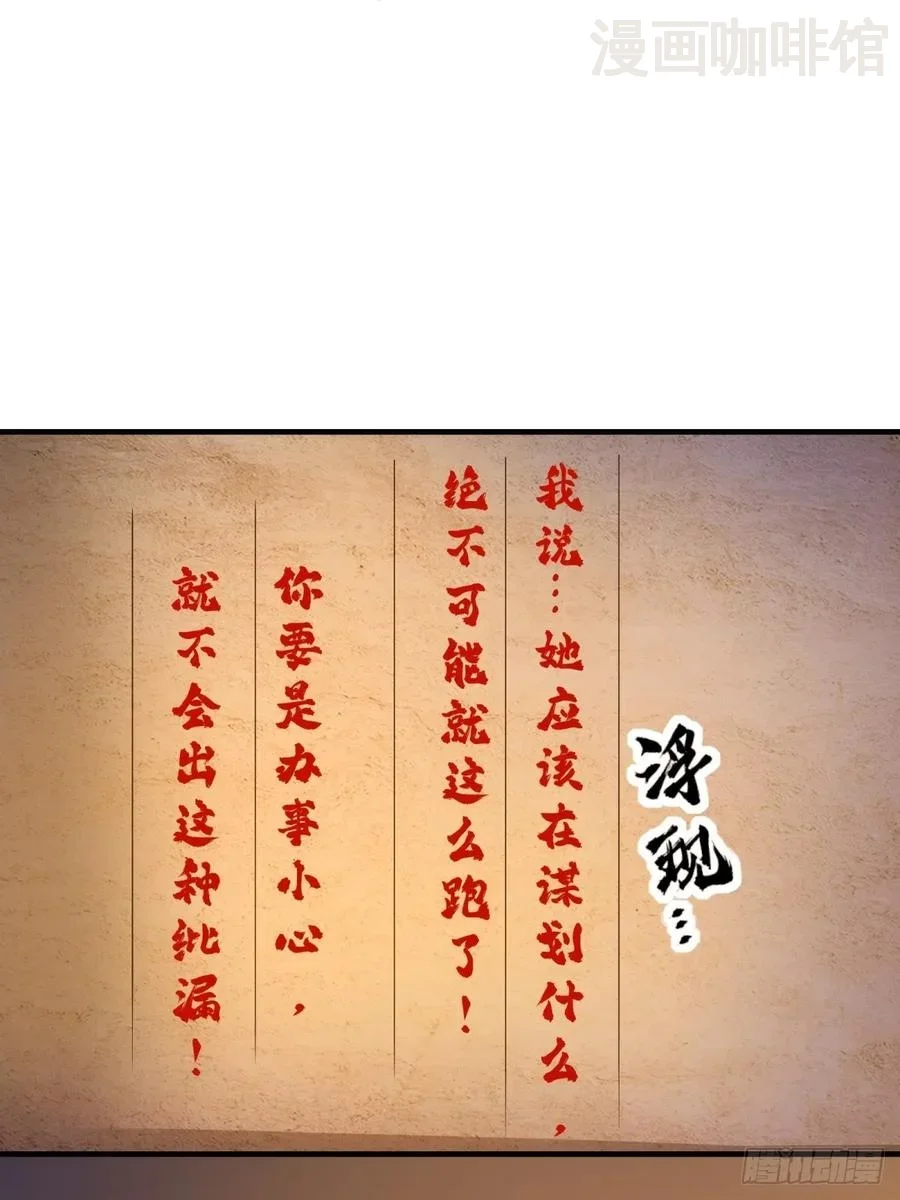 漫画咖啡馆
浮现…
我说…她应该在谋划什么，
绝不可能就这么跑了！
你要是办事小心，
就不会出这种纰漏！
腾讯动漫